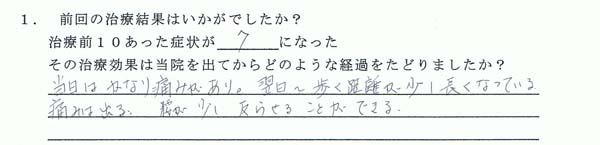 1. 前回の治療結果はいかがでしたか？
治療前10あった症状が 7 になった
その治療効果は当院を出てからどのような経過をたどりましたか？
当日はかなり痛みがあり。翌日〜歩く距離が少し長くなっている
痛みは出る、腰が少し反らせることができる.